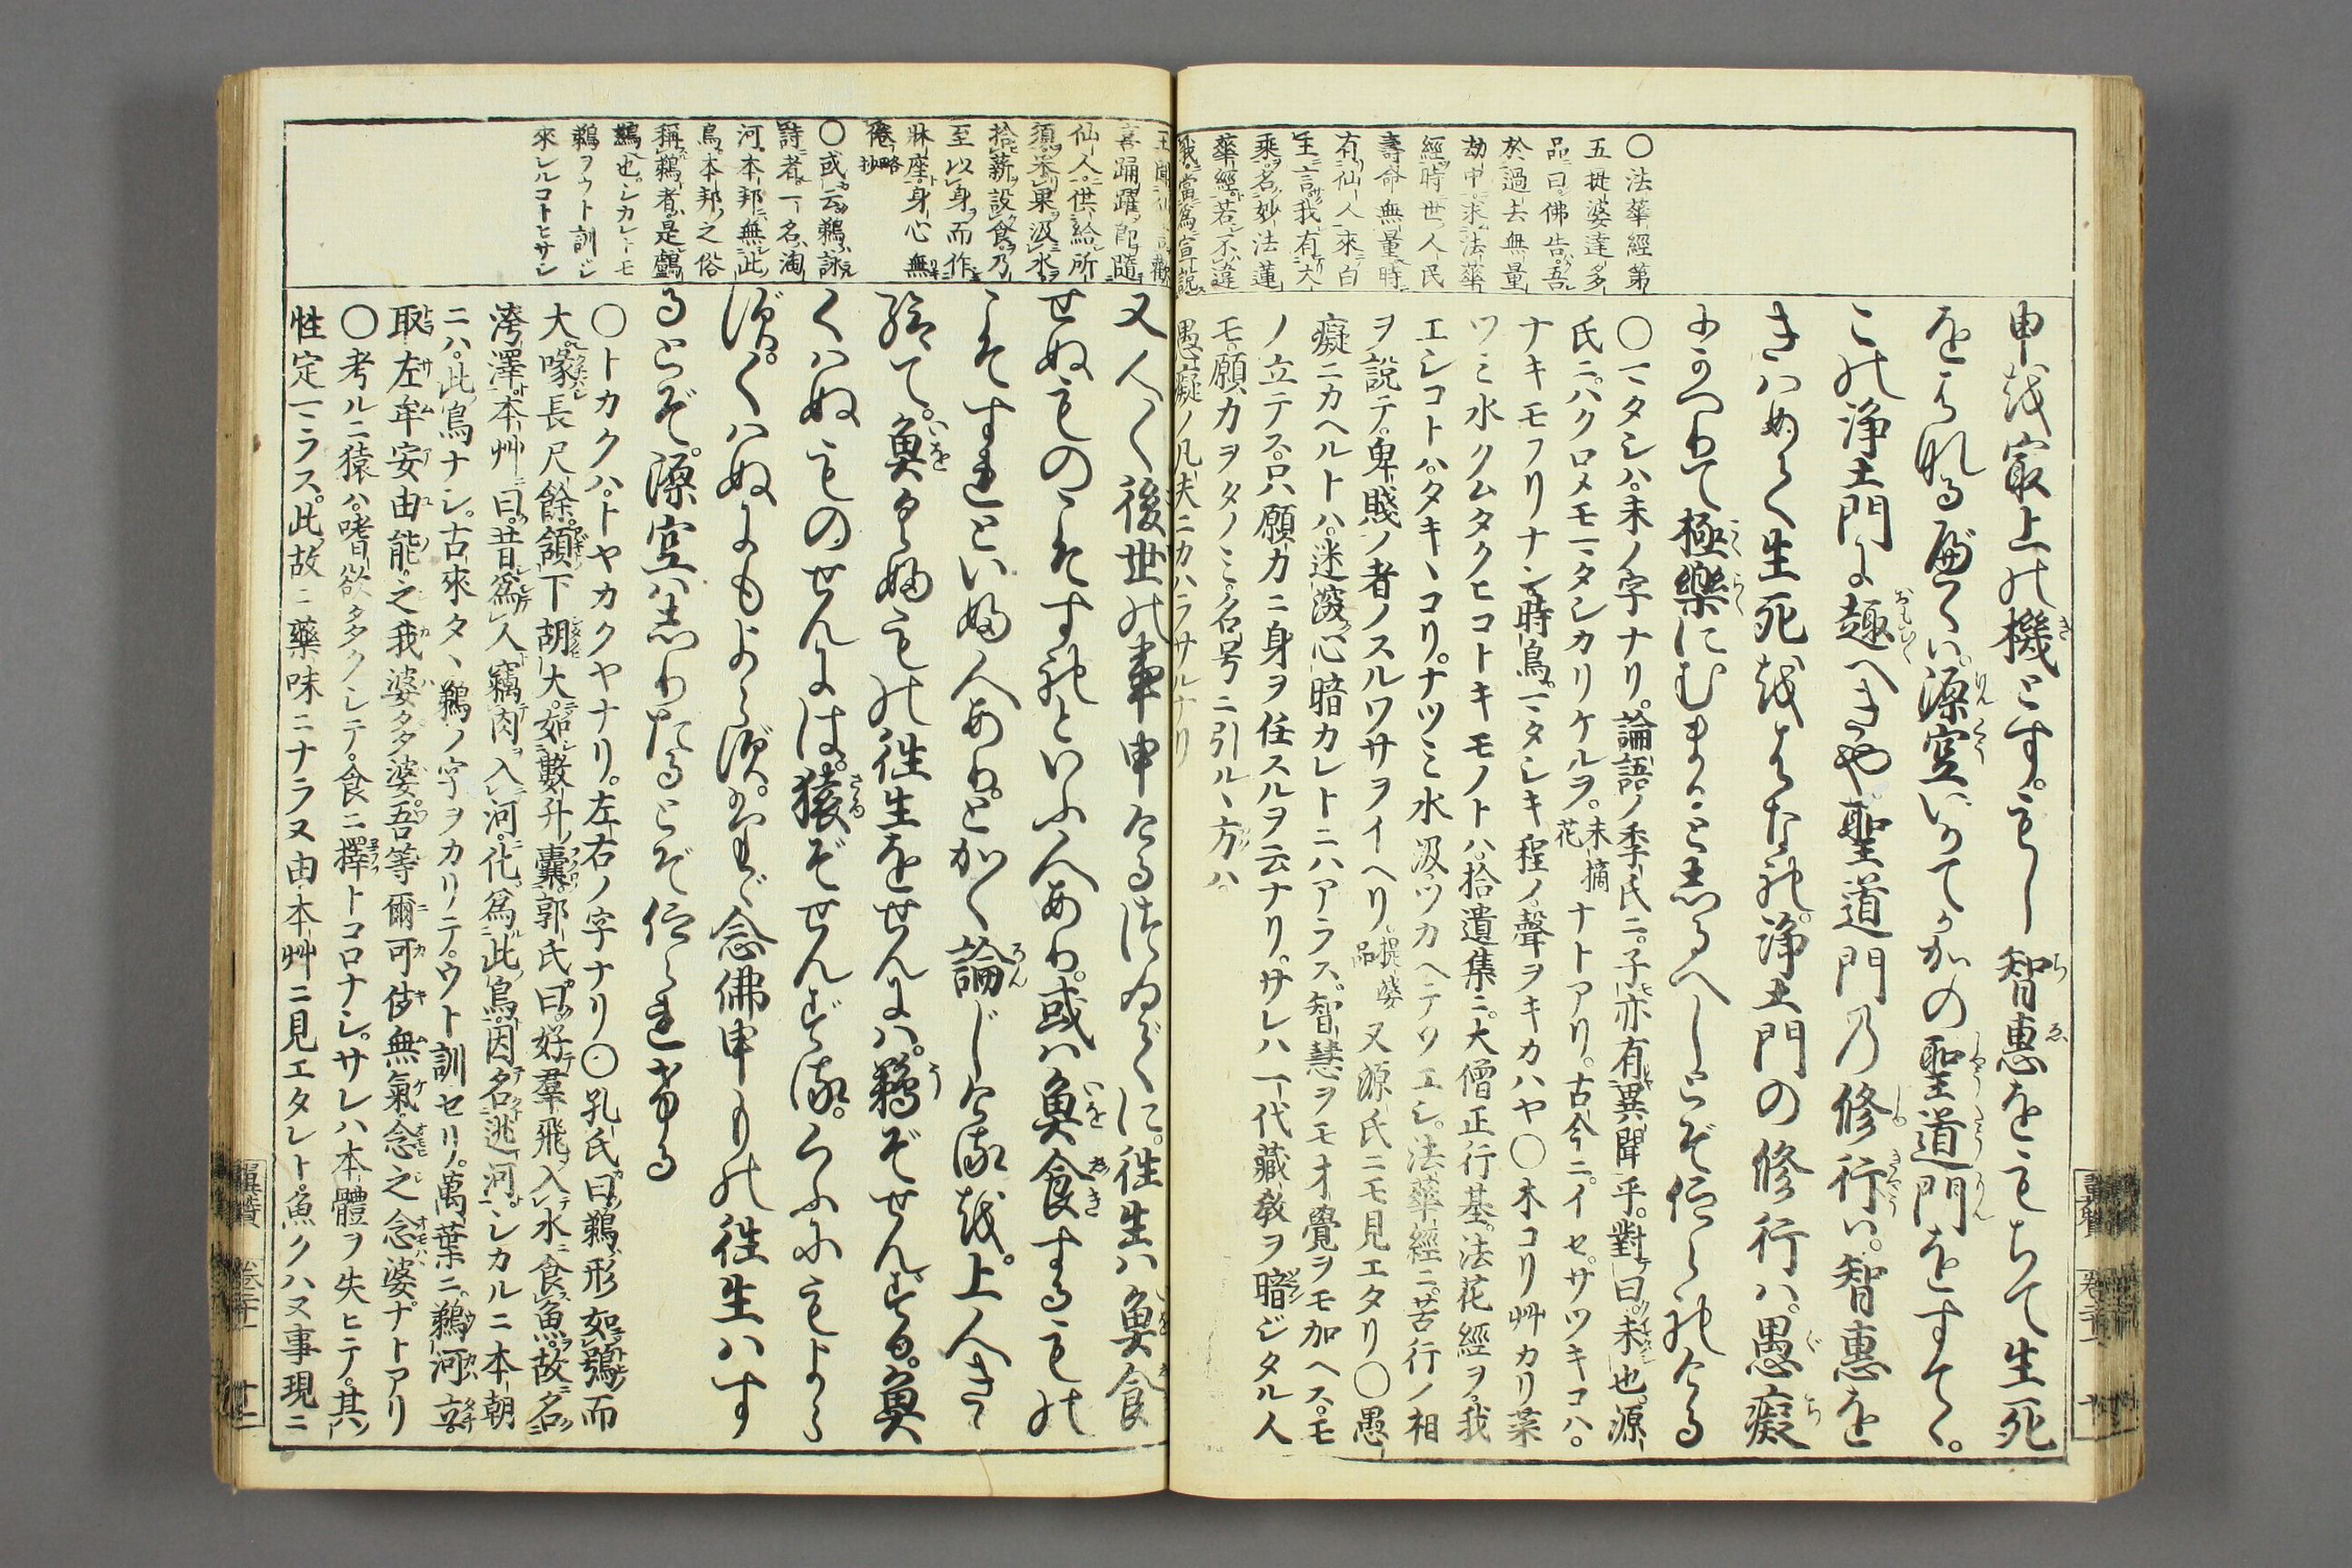 申は最上の機とす。もし智惠をもちて生死
をはなるべくば。源空いかてかかの聖道門をすてゝ。
この浄土門に趣へきや。聖道門の修行は。智惠を
きはめて生死をはなれ。浄土門の修行ハ。愚癡
にかへりて極樂にむまると志るへしとぞ仰られける
○法華經第
五提婆達多
品曰佛告吾
於過去無量
劫中求法華
經時世人民
壽命無量時
有仙人來白
王言我有大
乘名妙法蓮
華經若不違
我當爲宣說
○イマタシハ。未ノ字ナリ。論語ノ季氏ニ。子亦有異聞乎。對曰。未也。源
氏ニハクロメモイマタシカリケルヲ。末摘花ナトアリ。古今ニ。イセ。サツキコハ。
ナキモフリナン時鳥。イマタシキ程ノ聲ヲキカハヤ○木コリ艸カリ菜
ツミ水クムタクヒコトキモノトハ。拾遺集ニ。大僧正行基。法花經ヲ我
エシコトハ。タキヽコリ。ナツミ水汲ツカヘテソエシ。法華經ニ。苦行ノ相
ヲ說テ。卑賤ノ者ノスルワサヲイヘリ。提婆品又源氏ニモ見エタリ○愚
癡ニカヘルトハ。迷深心暗カレトニハアラス。智慧ヲモ才覺ヲモ加ヘス。モ
ノ立テス。只願力ニ身ヲ任スルヲ云ナリ。サレハ一代藏敎ヲ暗ジタル人
モ。願力ヲタノミ。名号ニ引ルヽ方ハ
愚癡ノ凡夫ニカハラサルナリ
喜踊躍即隨
仙人供給所
須采果汲水
拾薪設食乃
至以身而作
牀座身心無
倦略抄
○或云鵜詠
詩者一名淘
河本邦無此
鳥本邦之俗
稱鵜者是鸕
鷀也シカレトモ
鵜ヲウト訓シ
來レルコトヒサシ
又人〳〵後世の事申けるつゐてに。往生ハ魚食
せぬものこそすれといふ人あり。或ハ魚食するもの
こそすれといふ人あり。とかく論じけるを。上人きゝ
給て。魚くふもの往生をせんにハ。鵜ぞせんずる。魚
くはぬものせんには。猿ぞせんずる。くふにもよら
ず。くはぬにもよらず。たゞ念佛申もの往生ハす
るとぞ。源空ハ志りたるとぞ仰られける
○トカクハ。トヤカクヤナリ。左右ノ字ナリ○孔氏曰。鵜形如鶚而
大。喙長尺餘。頷下胡大。如數升囊。郭氏曰。好羣飛入水食魚。故名
洿澤。本艸曰。昔爲人竊肉入河。化爲此鳥。因名逃河。シカルニ本朝
ニハ。此鳥ナシ。古來タヽ鵜ノ字ヲカリテ。ウト訓セリ。萬葉ニ。鵜河立。
取左牟安由能。之我婆多婆。吾等爾可伎無氣。念之念婆。ナトアリ
○考ルニ猿ハ。嗜欲多クシテ。食ニ擇トコロナシ。サレハ本體ヲ失ヒテ。其
性定マラス。此故ニ藥味ニナラヌ由本艸ニ見エタレト。魚クハヌ事現ニ